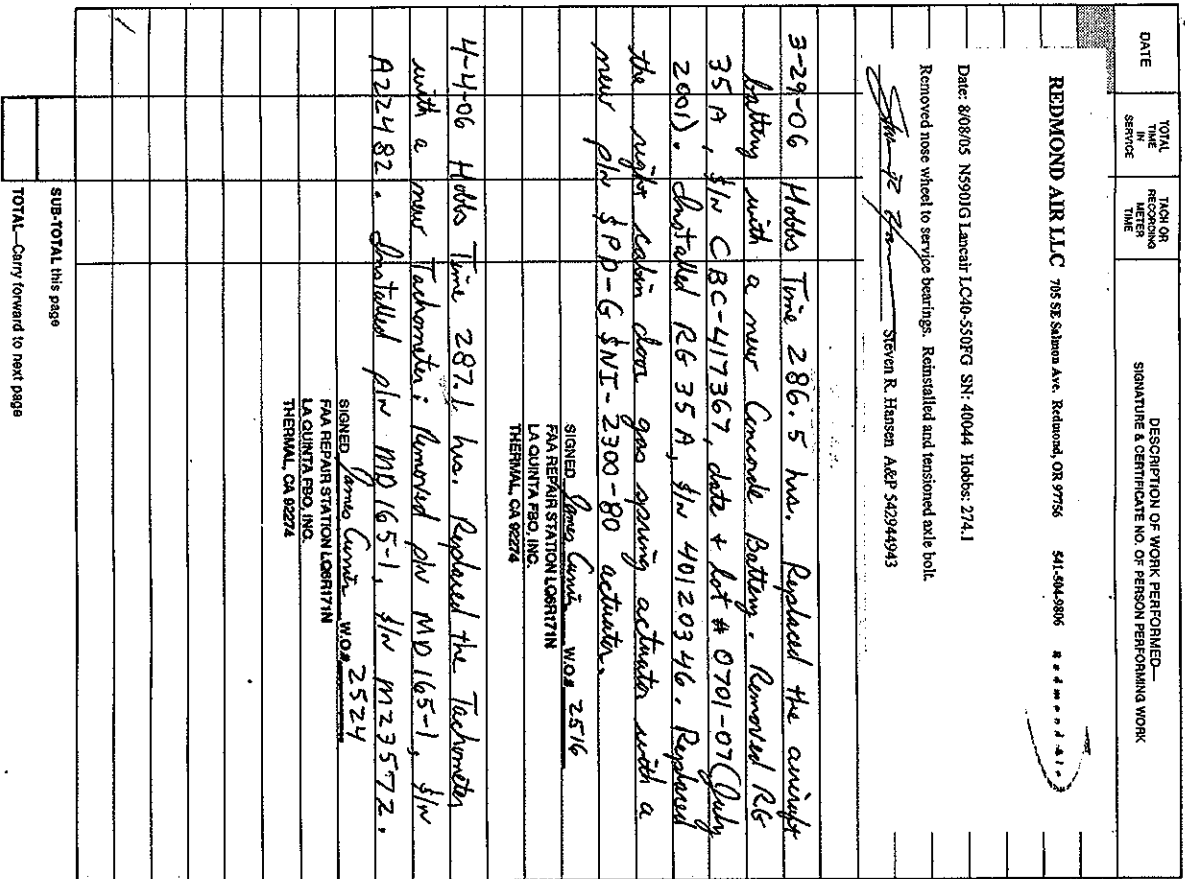 DATE
TOTAL TIME IN SERVICE
TACH OR RECORDING METER TIME
DESCRIPTION OF WORK PERFORMED—
SIGNATURE & CERTIFICATE NO. OF PERSON PERFORMING WORK
REDMOND AIR LLC 705 SE Salmon Ave. Redmond, OR 97756 541-504-9806
Date: 8/08/05 N590JG Lancair LC40-550FG SN: 40044 Hobbs: 274.1
Removed nose wheel to service bearings. Reinstalled and tensioned axle bolt.
Steven R. Hansen A&P 542944943
3-29-06 Hobbs Time 286.5 hrs. Replaced the aircraft
battery with a new Concorde Battery. Removed RG
35A, S/N CBC-417367, date & lot # 0701-07 (July
2001). Installed RG 35A, S/N 40120346. Replaced
the right cabin door gas spring actuator with a
new p/n SPD-GSNI-2300-80 actuator.
SIGNED James Curnin W.O.# 2516
FAA REPAIR STATION LQ6R171N
LA QUINTA FBO, INC.
THERMAL, CA 92274
4-4-06 Hobbs Time 287.1 hrs. Replaced the Tachometer
with a new Tachometer; Removed p/n MD165-1, S/N
A22482. Installed p/n MD165-1, S/N M23572.
SIGNED James Curnin W.O.# 2524
FAA REPAIR STATION LQ6R171N
LA QUINTA FBO, INC.
THERMAL, CA 92274
SUB-TOTAL this page
TOTAL—Carry forward to next page